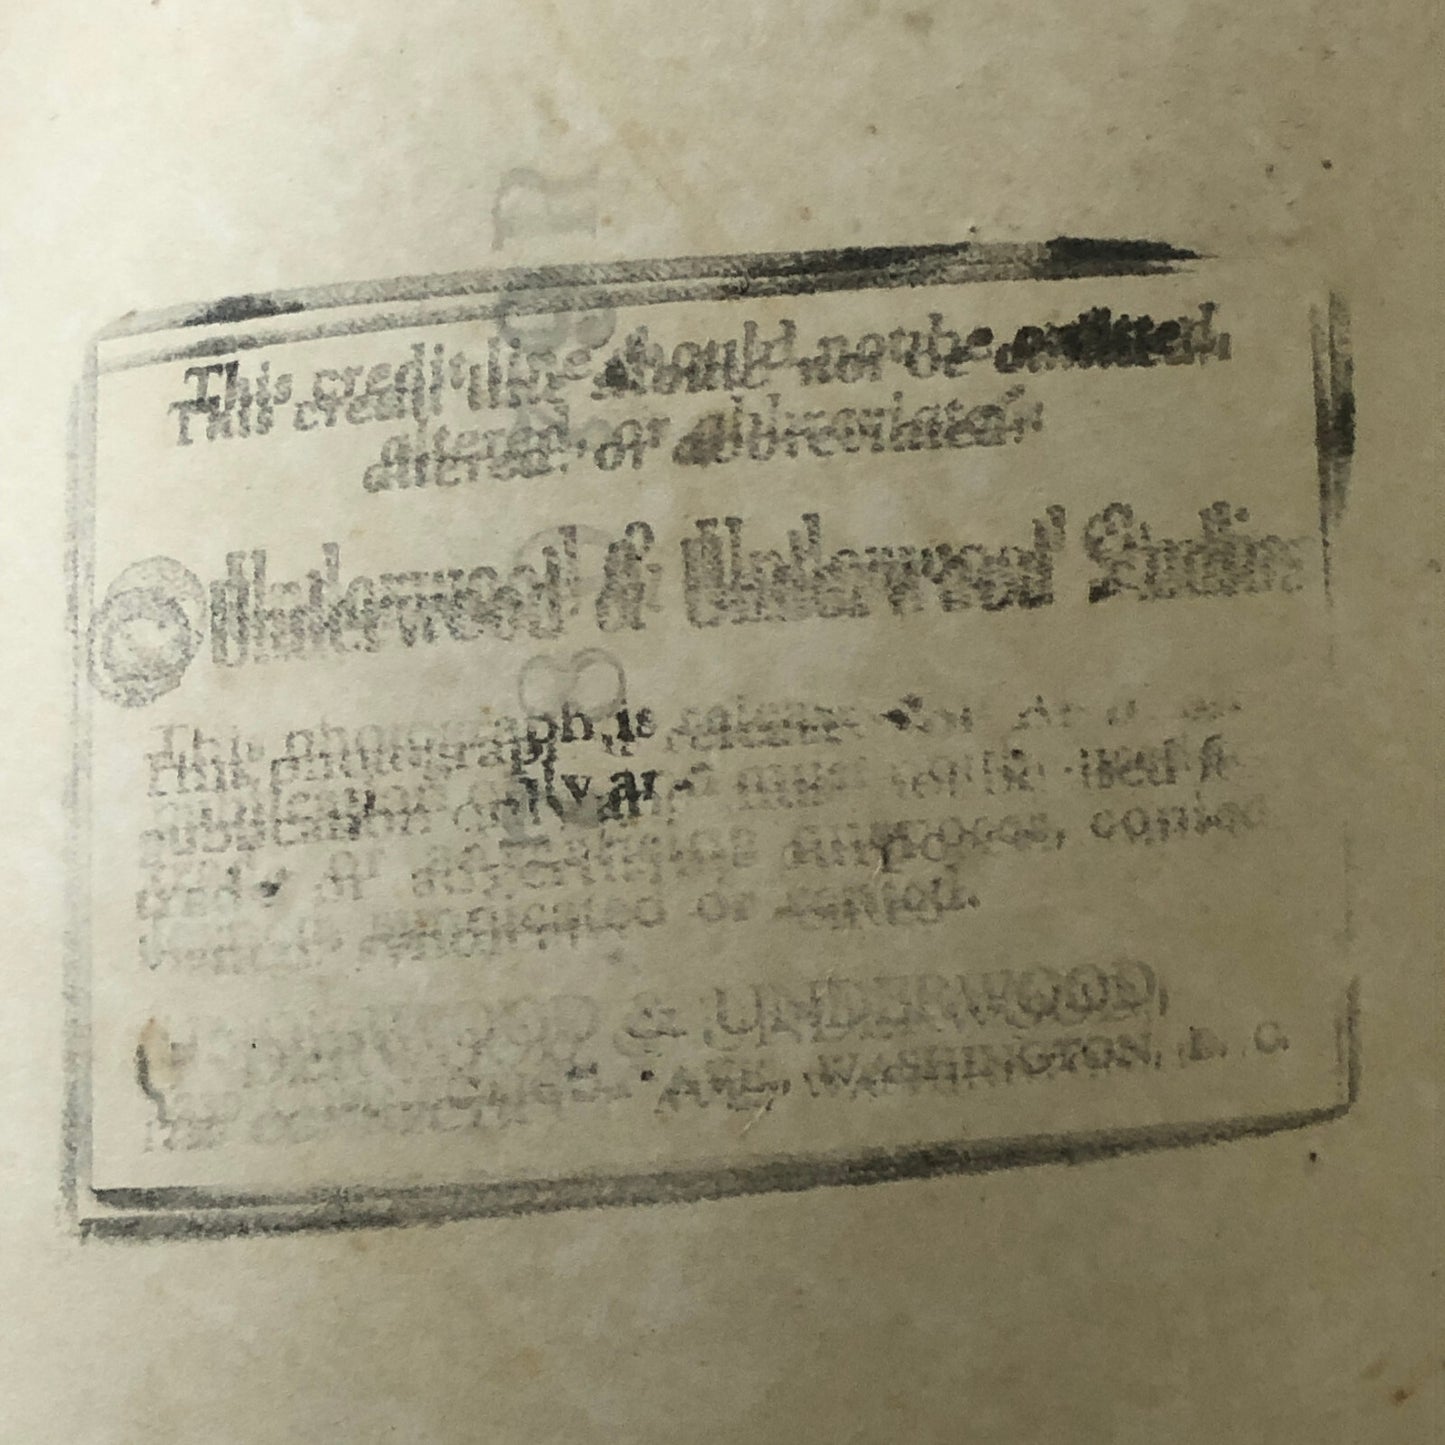 This credit line should not be omitted,
altered, or abbreviated:
© Underwood & Underwood Studios
This photograph is
publication only and must not be used for
trade or advertising purposes, copied
syndicated or
UNDERWOOD & UNDERWOOD,
CONNECTICUT AVE., WASHINGTON, D. C.